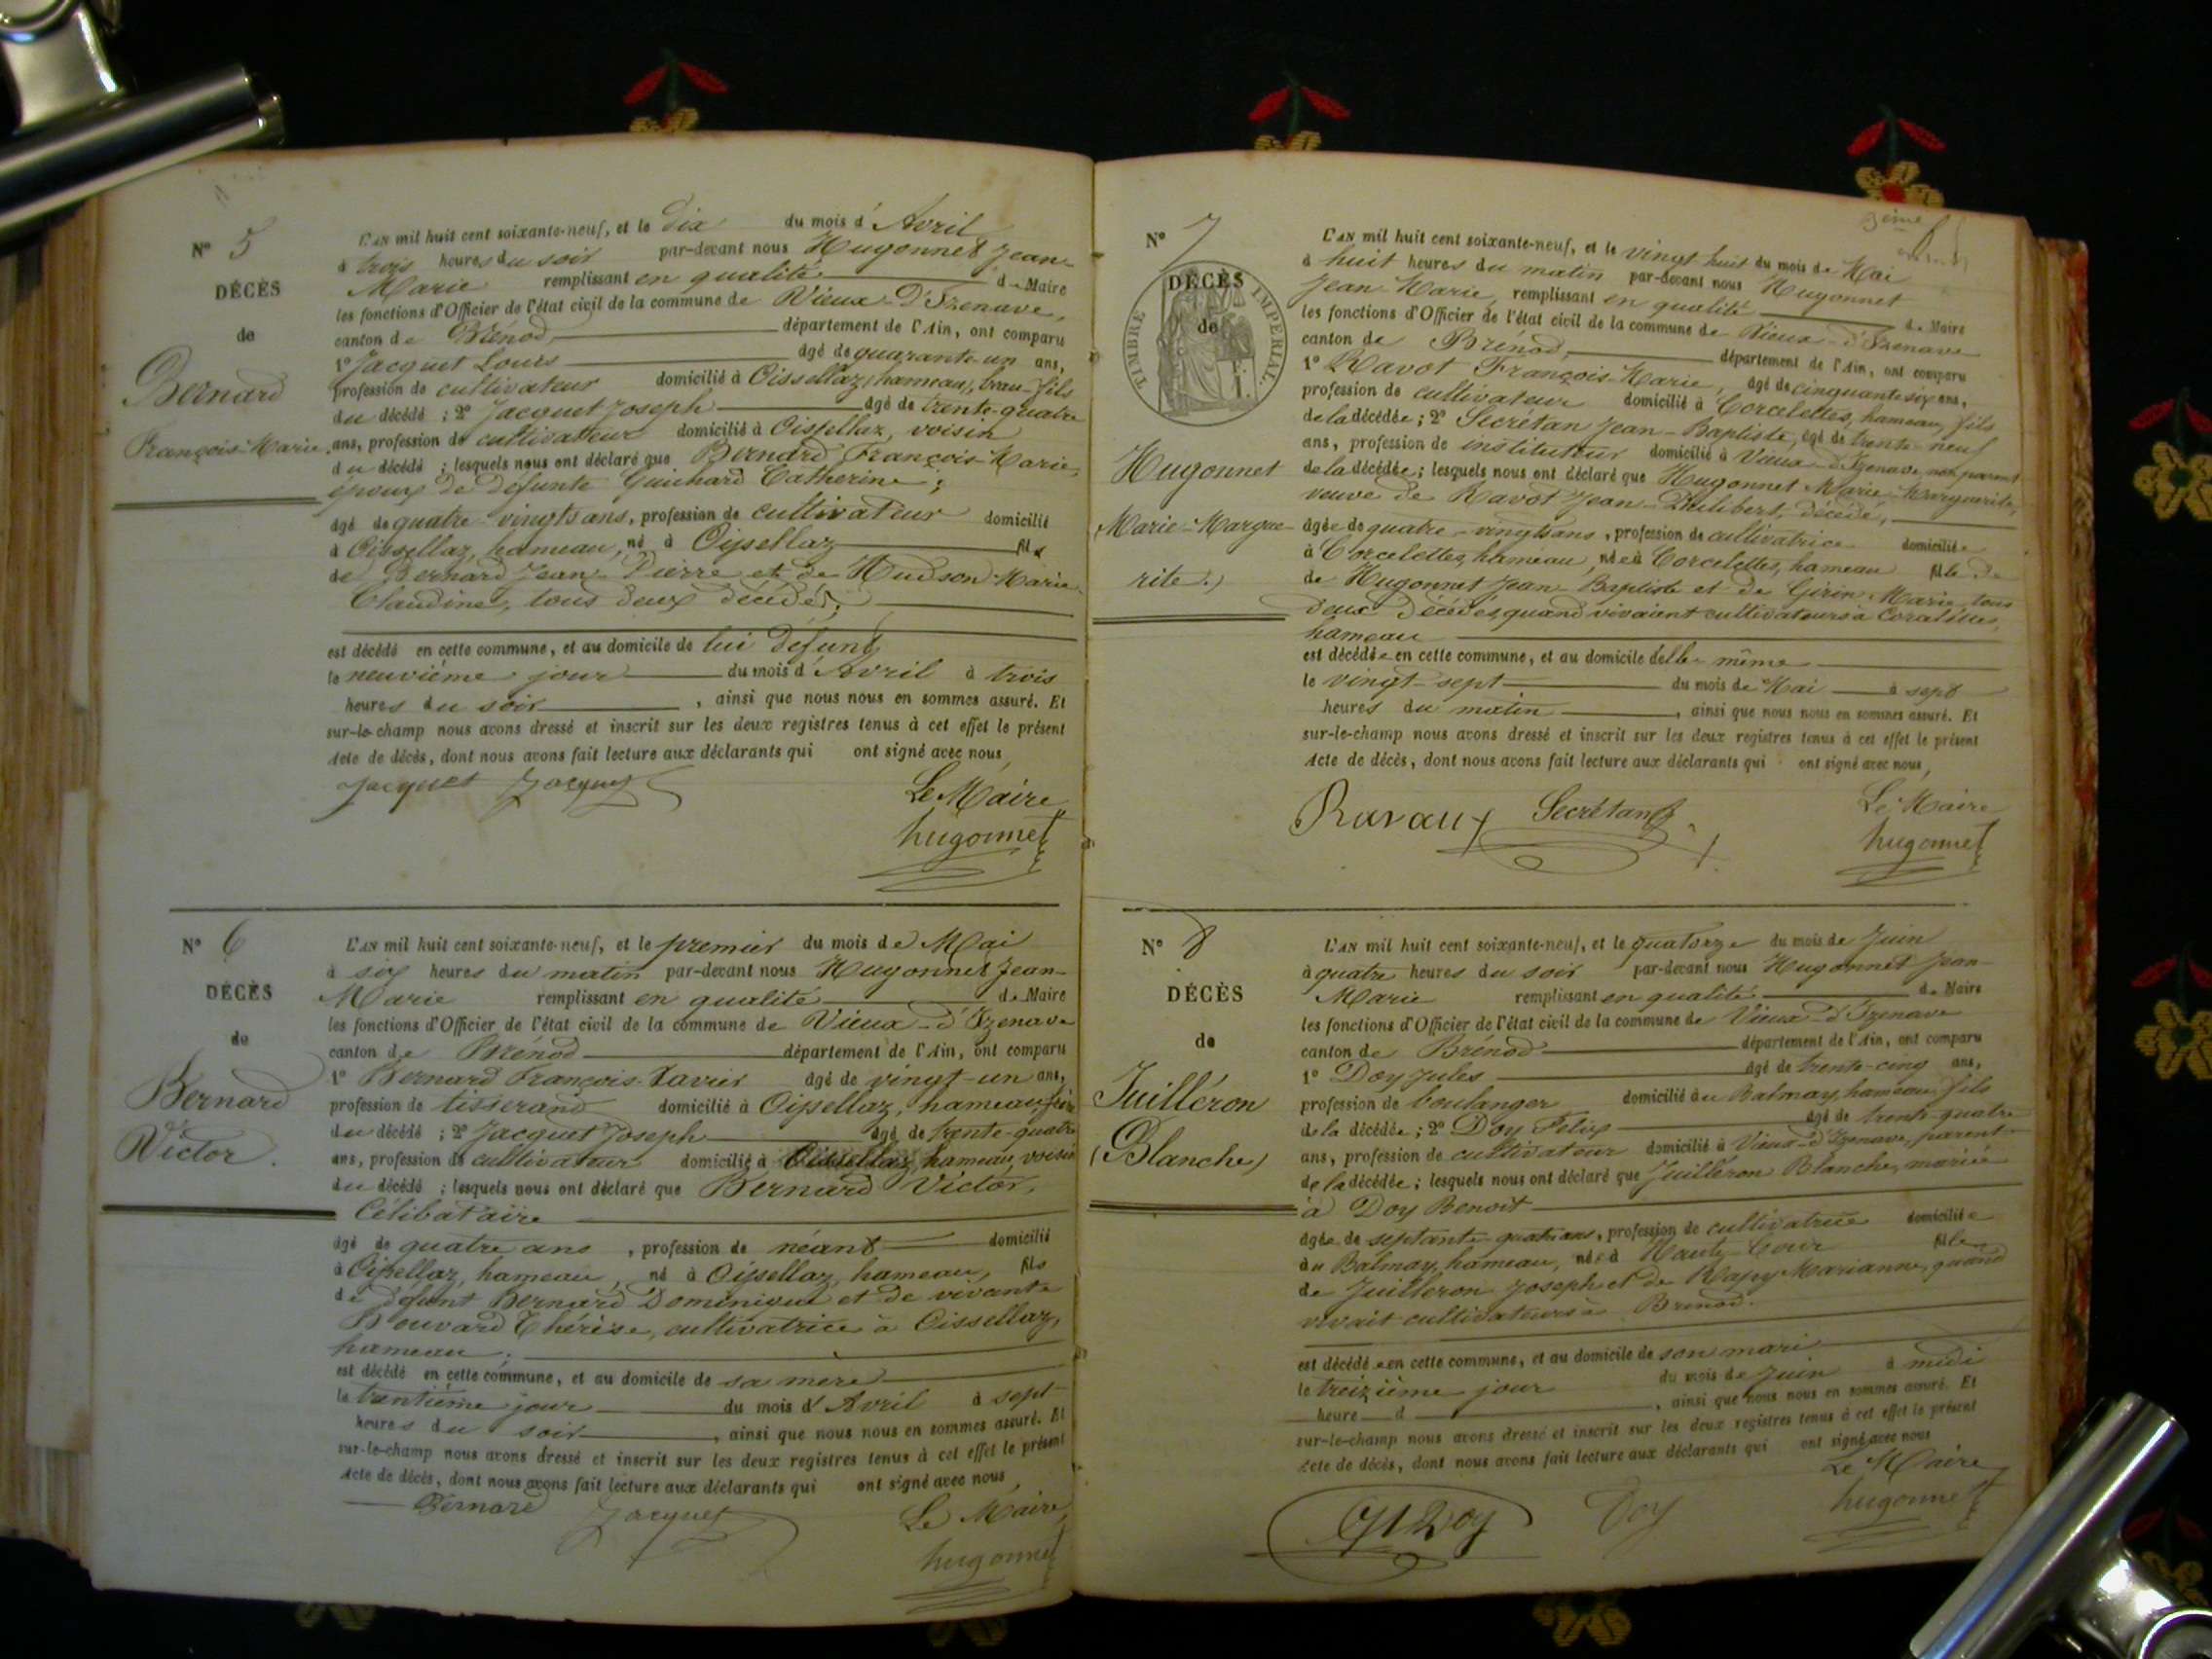 N° 5
DÉCÈS
de
Bernard
François-Marie.
L'AN mil huit cent soixante-neuf, et le Dix du mois d'Avril
à trois heures du soir par-devant nous Hugonnet Jean-
Marie remplissant en qualité de Maire
les fonctions d'Officier de l'état civil de la commune de Vieux-D'Izenave,
canton de Brénod, département de l'Ain, ont comparu
1° Jacquet Louis âgé de quarante-un ans,
profession de cultivateur domicilié à Oissellaz, hameau, beau-fils
du décédé ; 2° Jacquet Joseph âgé de trente-quatre
ans, profession de cultivateur domicilié à Oissellaz, voisin
du décédé ; lesquels nous ont déclaré que Bernard François-Marie,
époux de défunte Guichard Catherine ;
âgé de quatre-vingts ans, profession de cultivateur domicilié
à Oissellaz, hameau, né à Oissellaz fils
de Bernard Jean-Pierre et de Hudson Marie
Claudine, tous deux décédés,
est décédé en cette commune, et au domicile de lui défunt
le neuvième jour du mois d'Avril à trois
heures du soir, ainsi que nous nous en sommes assuré. Et
sur-le-champ nous avons dressé et inscrit sur les deux registres tenus à cet effet le présent
Acte de décès, dont nous avons fait lecture aux déclarants qui ont signé avec nous,
Jacquet Jacquet Le Maire
hugonnet
N° 6
DÉCÈS
de
Bernard
Victor.
L'AN mil huit cent soixante-neuf, et le premier du mois de Mai
à six heures du matin par-devant nous Hugonnet Jean-
Marie remplissant en qualité de Maire
les fonctions d'Officier de l'état civil de la commune de Vieux-d'Izenave
canton de Brénod département de l'Ain, ont comparu
1° Bernard François-Xavier âgé de vingt-un ans,
profession de tisserand domicilié à Oissellaz, hameau, frère
du décédé ; 2° Jacquet Joseph âgé de trente-quatre
ans, profession de cultivateur domicilié à Oissellaz, hameau, voisin
du décédé ; lesquels nous ont déclaré que Bernard Victor,
Célibataire
âgé de quatre ans, profession de néant domicilié
à Oissellaz, hameau, né à Oissellaz, hameau, fils
de défunt Bernard Dominique et de vivante
Bouvard Thérèse, cultivatrice à Oissellaz,
hameau ;
est décédé en cette commune, et au domicile de sa mère
le trentième jour du mois d'Avril à sept
heures du soir, ainsi que nous nous en sommes assuré. Et
sur-le-champ nous avons dressé et inscrit sur les deux registres tenus à cet effet le présent
Acte de décès, dont nous avons fait lecture aux déclarants qui ont signé avec nous,
Bernard Jacquet Le Maire,
hugonnet
N° 7
TIMBRE IMPÉRIAL.
DÉCÈS
de
Hugonnet
Marie-Margue-
rite.)
L'AN mil huit cent soixante-neuf, et le vingt-huit du mois de Mai
à huit heures du matin par-devant nous Hugonnet
Jean-Marie, remplissant en qualité de Maire
les fonctions d'Officier de l'état civil de la commune de Vieux-d'Izenave
canton de Brénod, département de l'Ain, ont comparu
1° Ravot François-Marie, âgé de cinquante six ans,
profession de cultivateur domicilié à Corcelettes, hameau, fils
de la décédée ; 2° Secrétan Jean-Baptiste, âgé de trente-neuf
ans, profession de instituteur domicilié à Vieux-d'Izenave, non parent
de la décédée ; lesquels nous ont déclaré que Hugonnet Marie-Marguerite,
veuve de Ravot Jean-Philibert, décédé,
âgée de quatre-vingts ans, profession de cultivatrice domiciliée
à Corcelettes, hameau, née à Corcelettes, hameau fille de
de Hugonnet Jean-Baptiste et de Girin Marie, tous
deux décédés, quand vivaient cultivateurs à Corcelettes,
hameau
est décédée en cette commune, et au domicile d'elle-même
le vingt-sept du mois de Mai à sept
heures du matin, ainsi que nous nous en sommes assuré. Et
sur-le-champ nous avons dressé et inscrit sur les deux registres tenus à cet effet le présent
Acte de décès, dont nous avons fait lecture aux déclarants qui ont signé avec nous,
Ravaux Secrétan Le Maire
hugonnet
N° 8
DÉCÈS
de
Juilléron
(Blanche)
L'AN mil huit cent soixante-neuf, et le quatorze du mois de Juin
à quatre heures du soir par-devant nous Hugonnet Jean-
Marie remplissant en qualité de Maire
les fonctions d'Officier de l'état civil de la commune de Vieux-d'Izenave
canton de Brénod département de l'Ain, ont comparu
1° Doy Jules âgé de trente-cinq ans,
profession de boulanger domicilié au Balmay, hameau, fils
de la décédée ; 2° Doy Félix âgé de trente-quatre
ans, profession de cultivateur domicilié à Vieux-d'Izenave, parent
de la décédée ; lesquels nous ont déclaré que Juilléron Blanche, mariée
à Doy Benoît
âgée de septante-quatre ans, profession de cultivatrice domiciliée
au Balmay, hameau, née à Haute-Cour fille
de Juilléron Joseph et de Rapy Marianne, quand
vivait cultivateurs à Brénod.
est décédée en cette commune, et au domicile de son mari
le treizième jour du mois de Juin à midi
heure d, ainsi que nous nous en sommes assuré. Et
sur-le-champ nous avons dressé et inscrit sur les deux registres tenus à cet effet le présent
Acte de décès, dont nous avons fait lecture aux déclarants qui ont signé avec nous
Le Maire
Doy Doy hugonnet